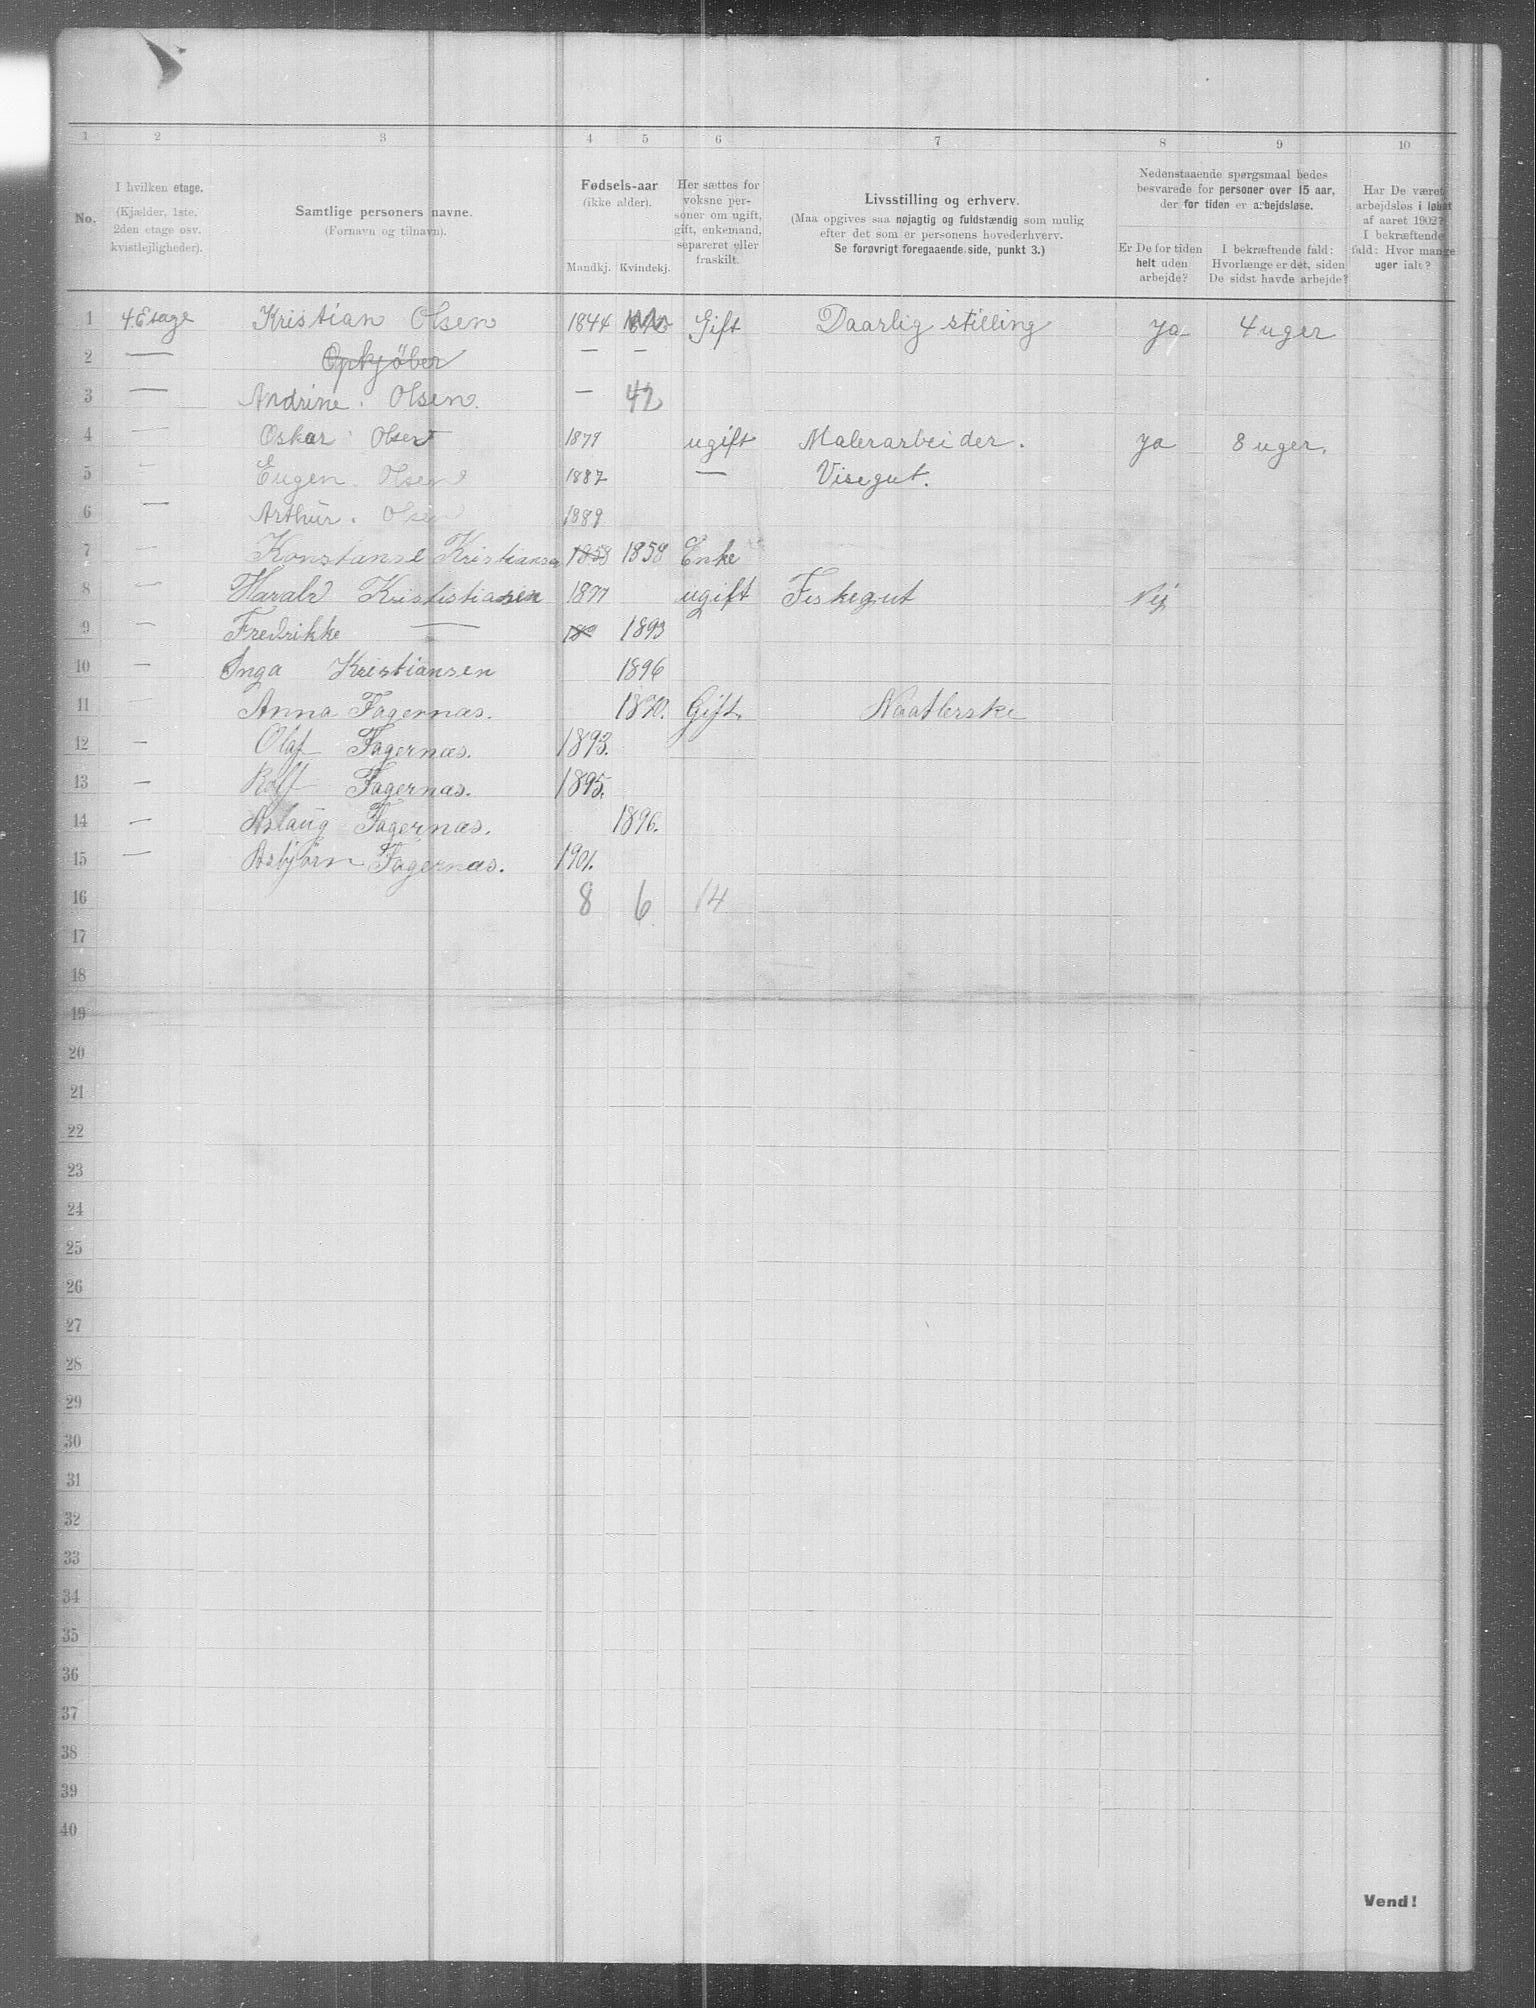 1 2 3 4 5 6 7 8 9 10
No.
I hvilken etage.
(Kjælder, 1ste,
2den etage osv.
kvistlejligheder).
Samtlige personers navne.
(Fornavn og tilnavn).
Fødsels-aar
(ikke alder).
Mandkj. Kvindekj.
Her sættes for
voksne per-
soner om ugift,
gift, enkemand,
separeret eller
fraskilt.
Livsstilling og erhverv.
(Maa opgives saa nøjagtig og fuldstændig som mulig
efter det som er personens hovederhverv.
Se forøvrigt foregaaende side, punkt 3.)
Nedenstaaende spørgsmaal bedes
besvarede for personer over 15 aar,
der for tiden er arbejdsløse.
Er De for tiden
helt uden
arbejde?
I bekræftende fald:
Hvorlænge er det, siden
De sidst havde arbejde?
Har De været
arbejdsløs i løbet
af aaret 1902?
I bekræftende
fald: Hvor mange
uger ialt?
1 4. Etage Kristian Olsen 1844 Gift Daarlig stilling ja 4 uger
2 — Opkjøber — —
3 — Andrine. Olsen. — 42
4 — Oskar Olsen 1879 ugift Malerarbeider. ja 8 uger.
5 — Eugen. Olsen 1887 — Visegut.
6 — Arthur. Olsen 1889
7 — Konstanse Kristiansen 1858 1858 Enke
8 — Harald Krististiansen 1877 ugift Fiskegut Nej
9 — Fredrikke — 1893
10 — Inga Kristiansen 1896
11 — Anna Fagernæs. 1870. Gift. Naatlerske
12 — Olaf Fagernæs. 1893.
13 — Rolf Fagernæs. 1895.
14 — Aslaug Fagernæs. 1896.
15 — Asbjørn Fagernæs. 1901.
16 8 6 14
17
18
19
20
21
22
23
24
25
26
27
28
29
30
31
32
33
34
35
36
37
38
39
40
Vend!